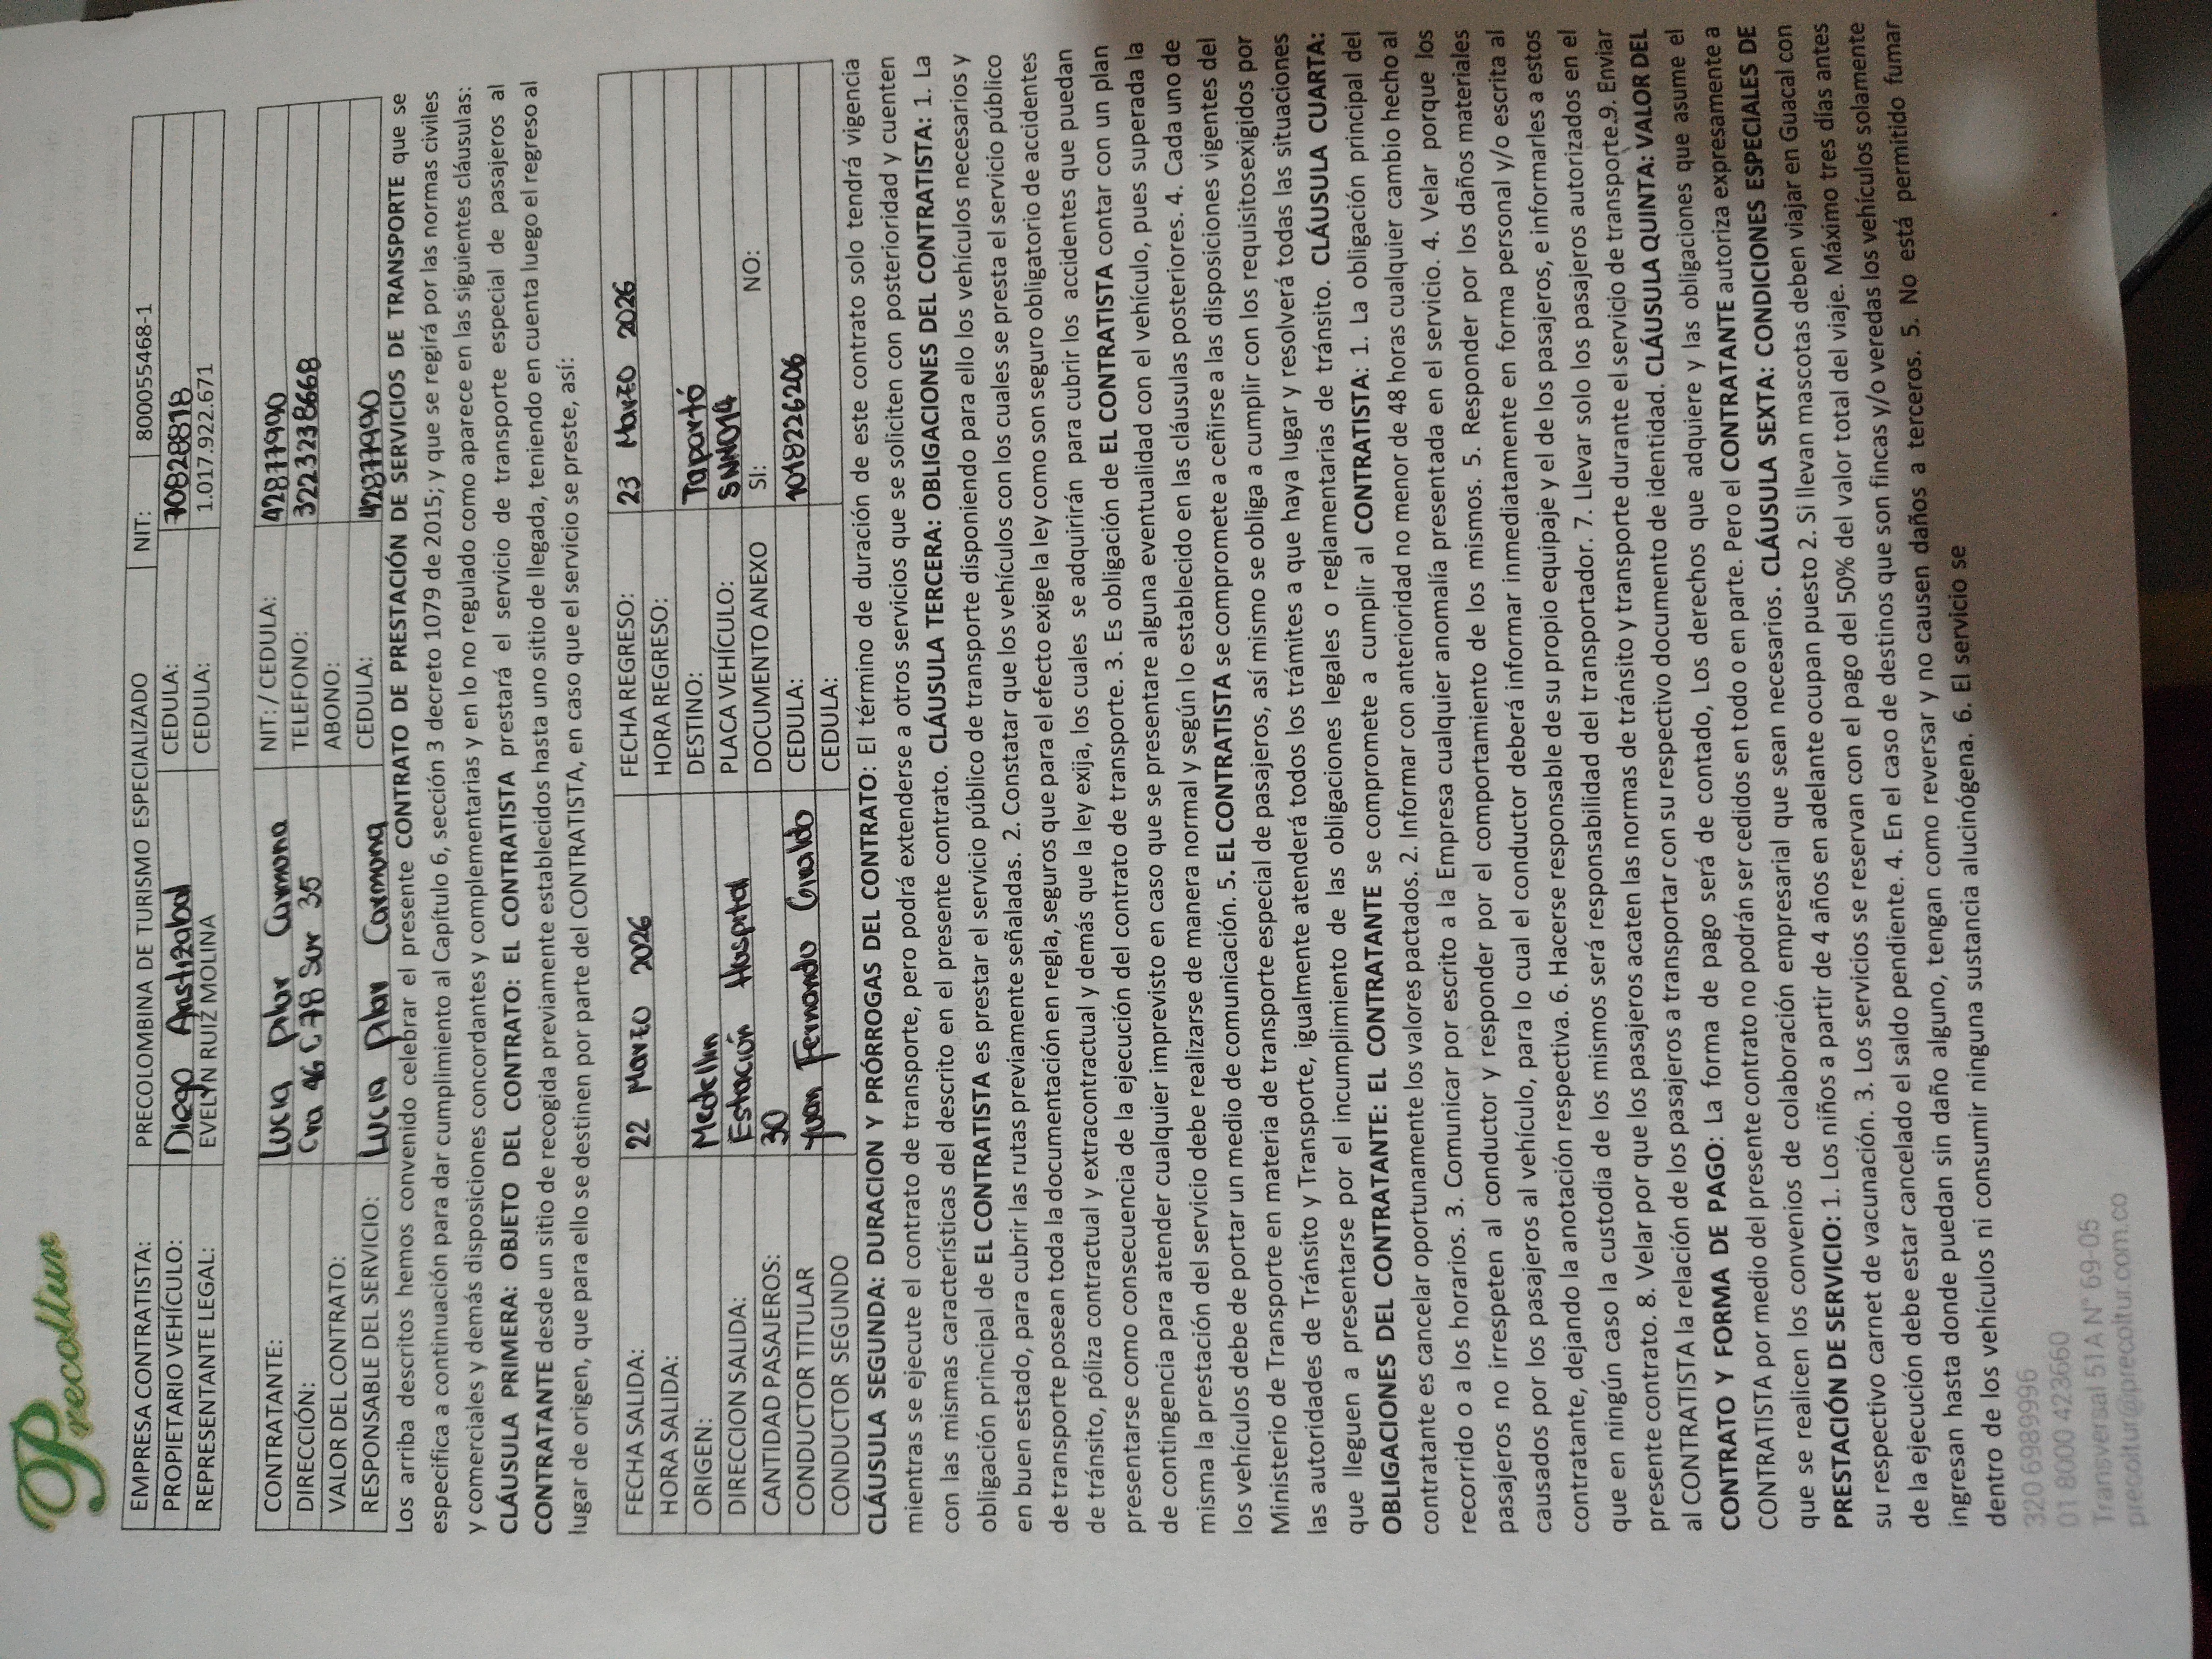 Precoltur
EMPRESA CONTRATISTA: PRECOLOMBINA DE TURISMO ESPECIALIZADO NIT: 800055468-1
PROPIETARIO VEHÍCULO: Diego Aristizabal CEDULA: 70828818
REPRESENTANTE LEGAL: EVELYN RUIZ MOLINA CEDULA: 1.017.922.671
CONTRATANTE: Lucia Pilar Carmona NIT: / CEDULA: 42877990
DIRECCIÓN: Cra 46 C 78 Sur 35 TELEFONO: 3223238668
VALOR DEL CONTRATO: ABONO:
RESPONSABLE DEL SERVICIO: Lucia Pilar Carmona CEDULA: 42877990
Los arriba descritos hemos convenido celebrar el presente CONTRATO DE PRESTACIÓN DE SERVICIOS DE TRANSPORTE que se
especifica a continuación para dar cumplimiento al Capítulo 6, sección 3 decreto 1079 de 2015; y que se regirá por las normas civiles
y comerciales y demás disposiciones concordantes y complementarias y en lo no regulado como aparece en las siguientes cláusulas:
CLÁUSULA PRIMERA: OBJETO DEL CONTRATO: EL CONTRATISTA prestará el servicio de transporte especial de pasajeros al
CONTRATANTE desde un sitio de recogida previamente establecidos hasta uno sitio de llegada, teniendo en cuenta luego el regreso al
lugar de origen, que para ello se destinen por parte del CONTRATISTA, en caso que el servicio se preste, así:
FECHA SALIDA: 22 Marzo 2026 FECHA REGRESO: 23 Marzo 2026
HORA SALIDA: HORA REGRESO:
ORIGEN: Medellin DESTINO: Tapartó
DIRECCION SALIDA: Estación Hospital PLACA VEHÍCULO: SNM014
CANTIDAD PASAJEROS: 30 DOCUMENTO ANEXO SI: NO:
CONDUCTOR TITULAR Juan Fernando Giraldo CEDULA: 1018226206
CONDUCTOR SEGUNDO CEDULA:
CLÁUSULA SEGUNDA: DURACION Y PRÓRROGAS DEL CONTRATO: El término de duración de este contrato solo tendrá vigencia
mientras se ejecute el contrato de transporte, pero podrá extenderse a otros servicios que se soliciten con posterioridad y cuenten
con las mismas características del descrito en el presente contrato. CLÁUSULA TERCERA: OBLIGACIONES DEL CONTRATISTA: 1. La
obligación principal de EL CONTRATISTA es prestar el servicio público de transporte disponiendo para ello los vehículos necesarios y
en buen estado, para cubrir las rutas previamente señaladas. 2. Constatar que los vehículos con los cuales se presta el servicio público
de transporte posean toda la documentación en regla, seguros que para el efecto exige la ley como son seguro obligatorio de accidentes
de tránsito, póliza contractual y extracontractual y demás que la ley exija, los cuales se adquirirán para cubrir los accidentes que puedan
presentarse como consecuencia de la ejecución del contrato de transporte. 3. Es obligación de EL CONTRATISTA contar con un plan
de contingencia para atender cualquier imprevisto en caso que se presentare alguna eventualidad con el vehículo, pues superada la
misma la prestación del servicio debe realizarse de manera normal y según lo establecido en las cláusulas posteriores. 4. Cada uno de
los vehículos debe de portar un medio de comunicación. 5. EL CONTRATISTA se compromete a ceñirse a las disposiciones vigentes del
Ministerio de Transporte en materia de transporte especial de pasajeros, así mismo se obliga a cumplir con los requisitosexigidos por
las autoridades de Tránsito y Transporte, igualmente atenderá todos los trámites a que haya lugar y resolverá todas las situaciones
que lleguen a presentarse por el incumplimiento de las obligaciones legales o reglamentarias de tránsito. CLÁUSULA CUARTA:
OBLIGACIONES DEL CONTRATANTE: EL CONTRATANTE se compromete a cumplir al CONTRATISTA: 1. La obligación principal del
contratante es cancelar oportunamente los valores pactados. 2. Informar con anterioridad no menor de 48 horas cualquier cambio hecho al
recorrido o a los horarios. 3. Comunicar por escrito a la Empresa cualquier anomalía presentada en el servicio. 4. Velar porque los
pasajeros no irrespeten al conductor y responder por el comportamiento de los mismos. 5. Responder por los daños materiales
causados por los pasajeros al vehículo, para lo cual el conductor deberá informar inmediatamente en forma personal y/o escrita al
contratante, dejando la anotación respectiva. 6. Hacerse responsable de su propio equipaje y el de los pasajeros, e informarles a estos
que en ningún caso la custodia de los mismos será responsabilidad del transportador. 7. Llevar solo los pasajeros autorizados en el
presente contrato. 8. Velar por que los pasajeros acaten las normas de tránsito y transporte durante el servicio de transporte.9. Enviar
al CONTRATISTA la relación de los pasajeros a transportar con su respectivo documento de identidad. CLÁUSULA QUINTA: VALOR DEL
CONTRATO Y FORMA DE PAGO: La forma de pago será de contado, Los derechos que adquiere y las obligaciones que asume el
CONTRATISTA por medio del presente contrato no podrán ser cedidos en todo o en parte. Pero el CONTRATANTE autoriza expresamente a
que se realicen los convenios de colaboración empresarial que sean necesarios. CLÁUSULA SEXTA: CONDICIONES ESPECIALES DE
PRESTACIÓN DE SERVICIO: 1. Los niños a partir de 4 años en adelante ocupan puesto 2. Si llevan mascotas deben viajar en Guacal con
su respectivo carnet de vacunación. 3. Los servicios se reservan con el pago del 50% del valor total del viaje. Máximo tres días antes
de la ejecución debe estar cancelado el saldo pendiente. 4. En el caso de destinos que son fincas y/o veredas los vehículos solamente
ingresan hasta donde puedan sin daño alguno, tengan como reversar y no causen daños a terceros. 5. No está permitido fumar
dentro de los vehículos ni consumir ninguna sustancia alucinógena. 6. El servicio se
320 6989996
01 8000 423660
Transversal 51A N° 69-05
precoltur@precoltur.com.co